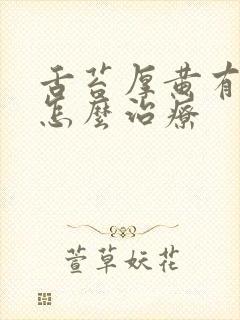 舌苔厚黄有
怎麼治療
萱草妖花